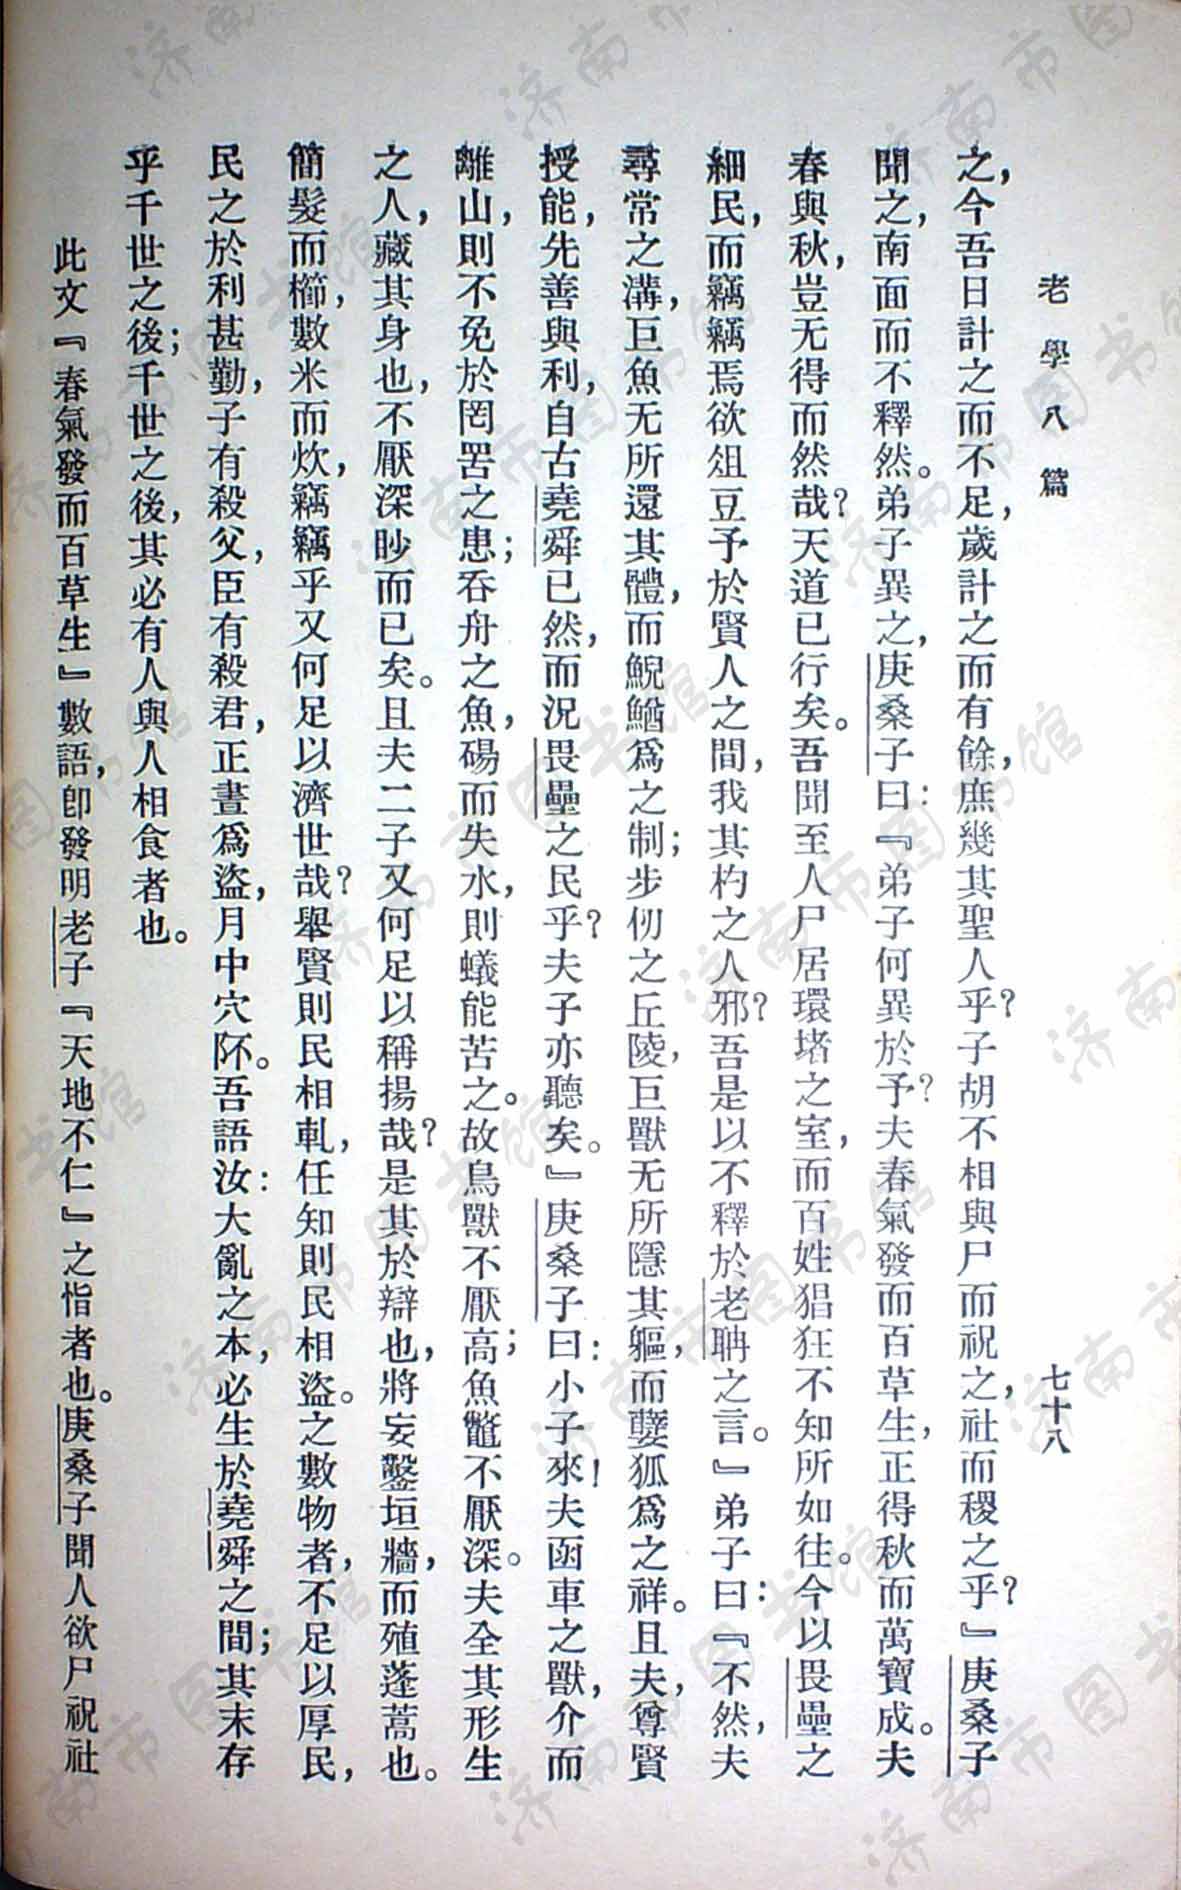 老學八篇
七十八
之，今吾日計之而不足，歲計之而有餘，庶幾其聖人乎？子胡不相與尸而祝之，社而稷之乎？』庚桑子
聞之，南面而不釋然。弟子異之，庚桑子曰：『弟子何異於予？夫春氣發而百草生，正得秋而萬寶成。夫
春與秋，豈无得而然哉？天道已行矣。吾聞至人尸居環堵之室，而百姓猖狂不知所如往。今以畏壘之
細民，而竊竊焉欲俎豆予於賢人之間，我其杓之人邪？吾是以不釋於老聃之言。』弟子曰：『不然，夫
尋常之溝，巨魚无所還其體，而鯢鰌爲之制；步仞之丘陵，巨獸无所隱其軀，而孽狐爲之祥。且夫，尊賢
授能，先善與利，自古堯舜已然，而況畏壘之民乎？夫子亦聽矣。』庚桑子曰：小子來！夫函車之獸，介而
離山，則不免於罔罟之患；吞舟之魚，碭而失水，則蟻能苦之。故鳥獸不厭高；魚鼈不厭深。夫全其形生
之人，藏其身也，不厭深眇而已矣。且夫二子又何足以稱揚哉？是其於辯也，將妄鑿垣牆，而殖蓬蒿也。
簡髮而櫛，數米而炊，竊竊乎又何足以濟世哉？舉賢則民相軋，任知則民相盜。之數物者，不足以厚民，
民之於利甚勤，子有殺父，臣有殺君，正晝爲盜，月中穴阫。吾語汝：大亂之本，必生於堯舜之間；其末存
乎千世之後；千世之後，其必有人與人相食者也。
此文『春氣發而百草生』數語，卽發明老子『天地不仁』之恉者也。庚桑子聞人欲尸祝社
济南市图书馆